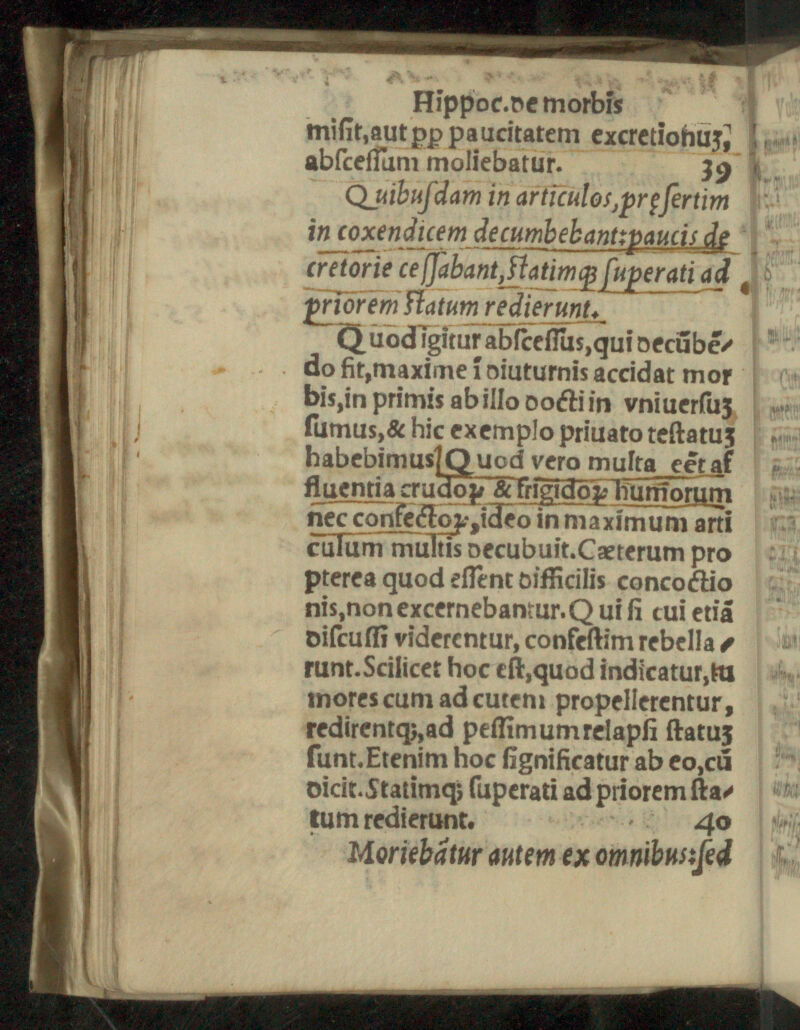 Hippoc.de morbis
misit,aut pp paucitatem excretionuʒ,
abſceſſum moliebatur. 39
Quibuſdam in articulos,pręſertim
in coxendicem decumbebant:paucis de
cretorie ceſſabant,Statimqꝫ ſuperati ad
priorem Statum redierunt.
Quod igitur abſceſſus,qui decūbē⸗
do fit,maxime ī diuturnis accidat mor
bis,in primis ab illo docti in vniuerſuʒ
ſumus,& hic exemplo priuato teſtatuʒ
habebimus[Quod vero multa eēt af
fluentia crudoꝝ & frigidoꝝ humorum
nec confectoꝝ,ideo in maximum arti
culum multis decubuit.Cæterum pro
pterea quod eſſent difficilis concoctio
nis,non excernebantur.Qui ſi cui etiā
diſcuſſi viderentur, confeſtim rebella⸗
runt.Scilicet hoc eſt,quod indicatur,tu
mores cum ad cutem propellerentur,
redirentqꝫ,ad peſſimum relapſi ſtatuʒ
ſunt.Etenim hoc ſignificatur ab eo,cū
dicit.Statimqꝫ ſuperati ad priorem ſta⸗
tum redierunt. 40
Moriebātur autem ex omnibus:ſed